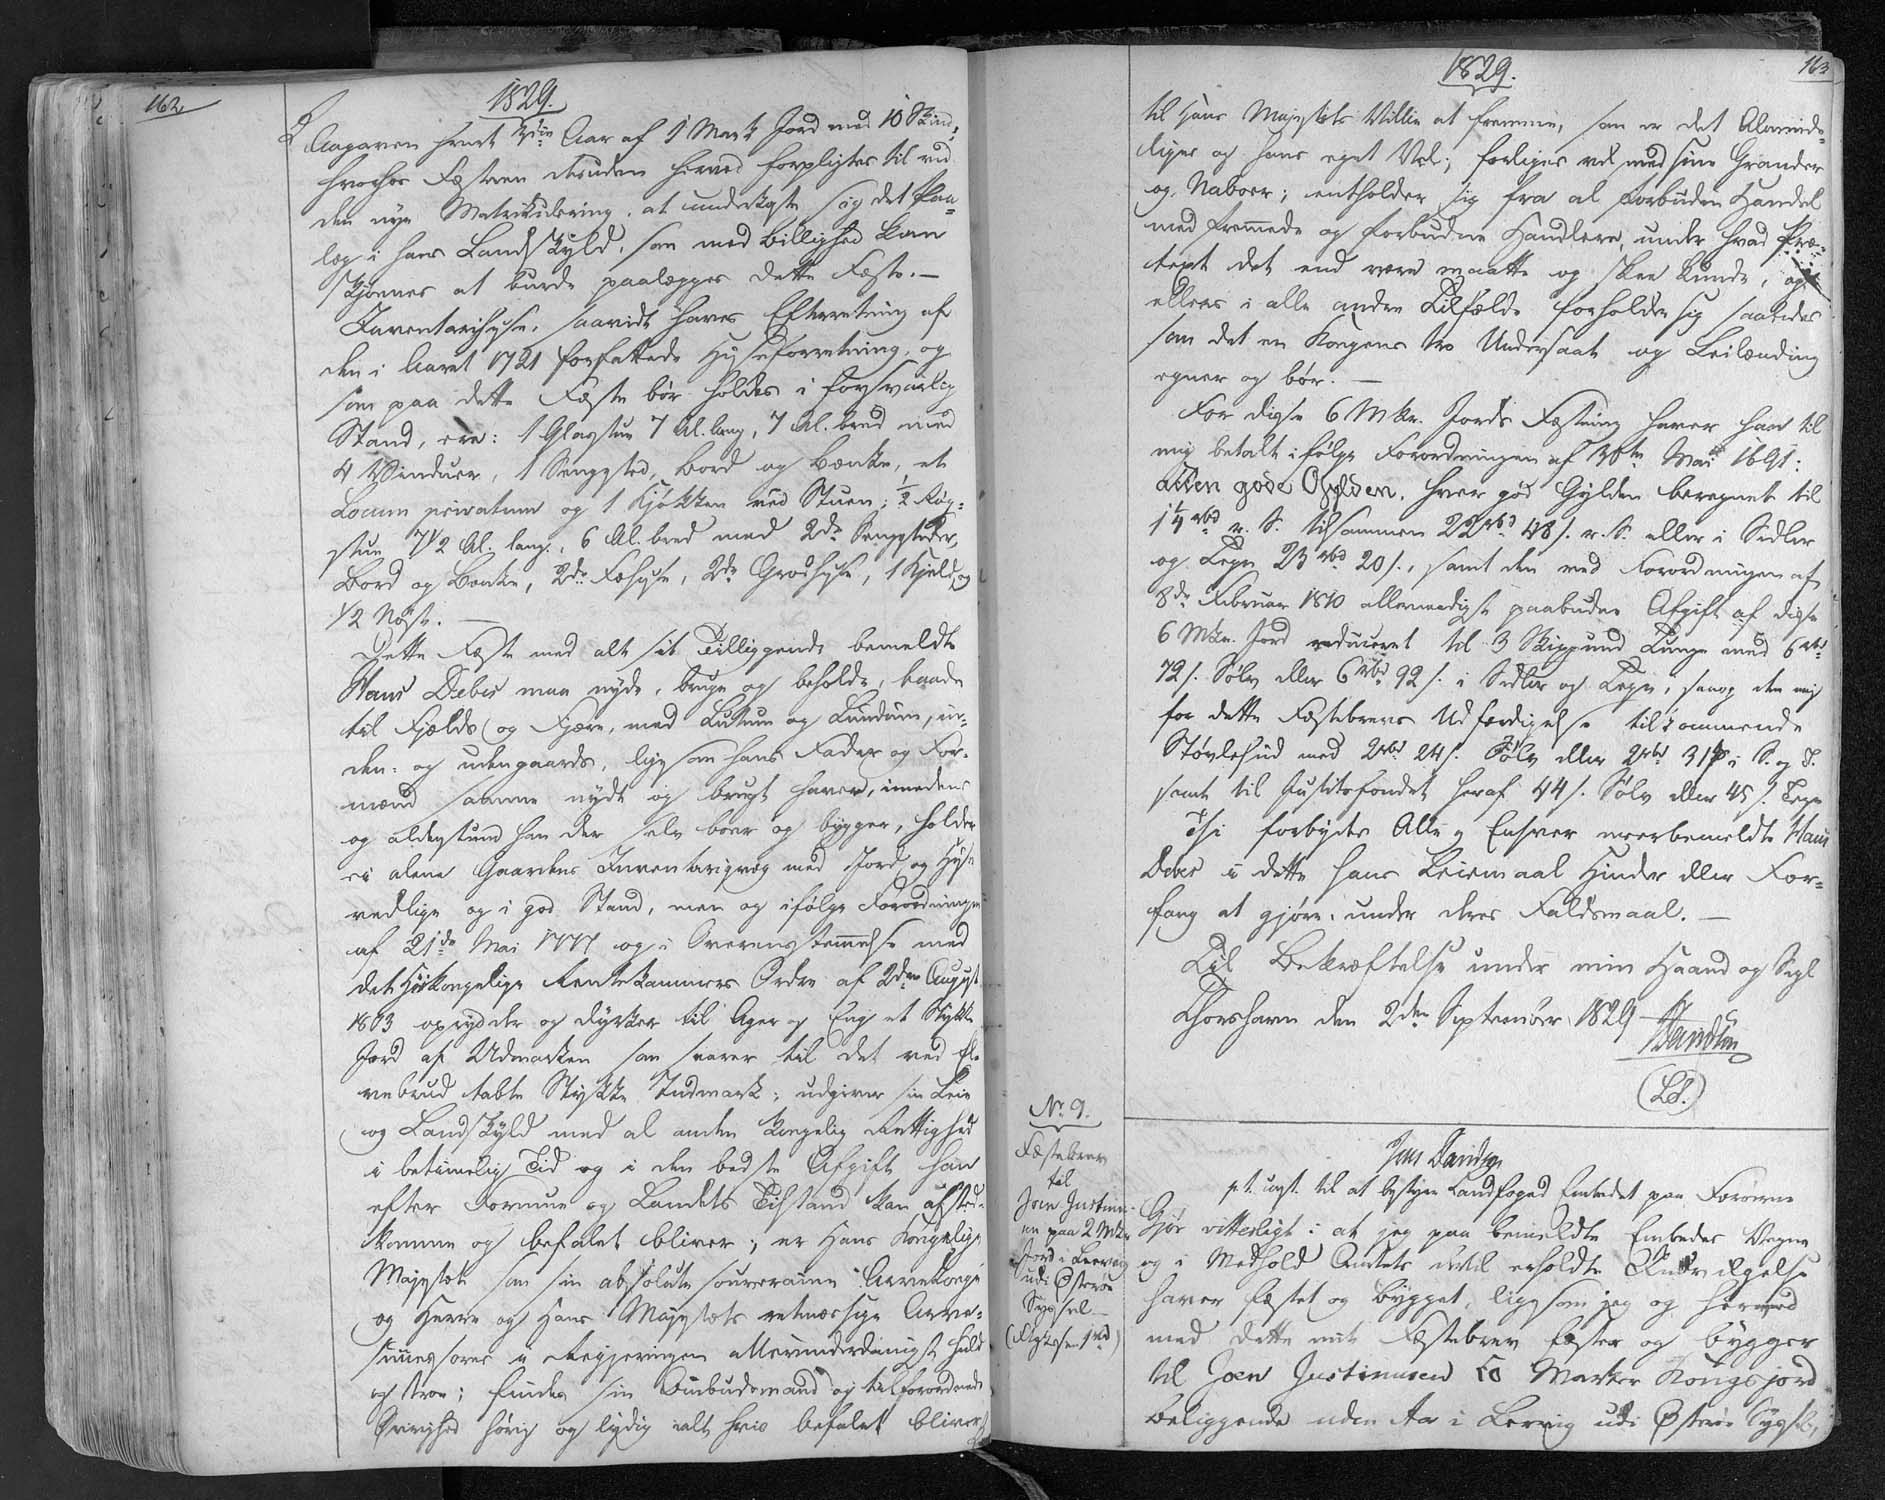 162
1829.
Aagaven hvert 3die Aar af 1 Mark Jord med 10 Skind,
hvorhos Fæsteren desuden herved forpligtes til ved
den nye Matrikulering, at underkaste sig det Paa-
læg i hans Landskyld, som med Billighed kan
skjønnes at burde paalægges dette Fæste.—
Inventariihuse, saavidt haves Efterretning af
den i Aaret 1721 forfattede Huseforretning, og
som paa dette Fæste bør holdes i forsvarlig
Stand, ere: 1 Glasstue 7 Al. lang, 7 Al. bred med
4 Vinduer, 1 Sengested, Bord og Bænke, et
Locum privatum og 1 Kjøkken ved Stuen; 1/2 Røg-
stue 7 1/2 Al. lang, 6 Al. bred med 2de Sengesteder,
Bord og Bænke, 2de Fæhuse, 2de Grødhuse, 1 Kjeld og
1/2 Nøst.—
Dette Fæste med alt sit Tilliggende bemeldte
Hans Debes maa nyde, bruge og beholde, baade
til Fjelds og Fjære, med Luttum og Lundum, in-
den- og udengaards, ligesom hans Fader og For-
mænd samme nydt og brugt haver, imedens
og aldenstund han der selv boer og bygger, holder
ei alene Gaardens Inventariqvæg med Jord og Huse
vedlige og i god Stand, men og ifølge Forordningen
af 21de Mai 1777 og i Overensstemmelse med
det Høikongelige Rentekammers Ordre af 2den August
1803 oprydder og dyrker til Ager og Eng et Stykke
Jord af Udmarken som svarer til det ved El-
vebrud tabte Stykke Indmark; udgiver sin Leie
og Landskyld med al anden Kongelig Rettighed
i betimelig Tid og i den bedste Afgift han
efter Formue og Landets Tilstand kan afsted-
komme og befalet bliver; er Hans Kongelige
Majestæt som sin absolute souveraine Arvekonge
og Herre og Hans Majestæts retmæssige Arve-
successorer i Regjeringen allerunderdanigst huld
og troe; findes sin Ombudsmand og tilforordnede
Øvrighed hørig og lydig i alt hvis befalet bliver
163
1829.
til Hans Majestæts Villie at fremme, som er det Alminde-
liges og hans eget Vel; forliges vel med sine Grander
og Naboer; entholder sig fra al forbuden Handel
med fremmede og forbudne Handlere, under hvad Præ-
text det end være maatte og skee kunde, og
ellers i alle andre Tilfælde forholder sig saaledes
som det en Kongens tro Undersaat og Leilænding
egner og bør.—
For disse 6 Mkr. Jords Fæstning haver han til
mig betalt ifølge Forordningen af 30te Mai 1691:
atten gode Gylden, hver god Gylden beregnet til
1 1/4 rbd r. S. tilsammen 22 rbd 48 s. r. S. eller i Sedler
og Tegn 23 rbd 20 s., samt den ved Forordningen af
8de Februar 1810 allernaadigst paabudne Afgift af disse
6 Mkr. Jord reduceret til 3 Skippund Tunge med 6 rbd
72 s. Sølv eller 6 rbd 92 s. i Sedler og Tegn, saa og den mig
for dette Fæstebrevs Udfærdigelse tilkommende
Støvlehud med 2 rbd 24 s. Sølv eller 2 rbd 31 s i S. og T.
samt til Justitsfondet heraf 44 s. Sølv eller 45 s. Tegn
Thi forbydes Alle og Enhver meerbemeldte Hans
Debes i dette hans Leiemaal Hinder eller For-
fang at gjøre, under deres Faldsmaal.—
Til Bekræftelse under min Haand og Segl
Thorshavn den 2den September 1829
Davidsen
(LS.)
No. 9.
Fæstebrev
til
Joen Justinus-
en paa 2 Mkr
Jord i Lervig
udi Østerøe
Syssel.—
Jens Davidsen
p. t. const. til at bestyre Landfoged Embedet paa Færøerne
Gjør vitterligt: at jeg paa bemeldte Embedes Vegne
og i Medhold Amtets dertil erholdte Autorisation
haver fæstet og bygget, ligesom jeg og herved
med dette mit Fæstebrev fæster og bygger
til Joen Justinusen to Marker Kongsjord
beliggende uden Aa i Lervig udi Østerøe Syssel,